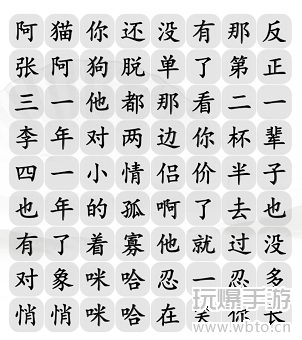 阿猫你还没有那反
张阿狗脱单了第正
三一他都那看二一
李年对两边你杯辈
四一小情侣价半子
也年的孤啊了去也
有了着寡他就过没
对象咪哈忍一忍多
悄悄咪哈在笑你长
玩爆手游
www.wbto.cn